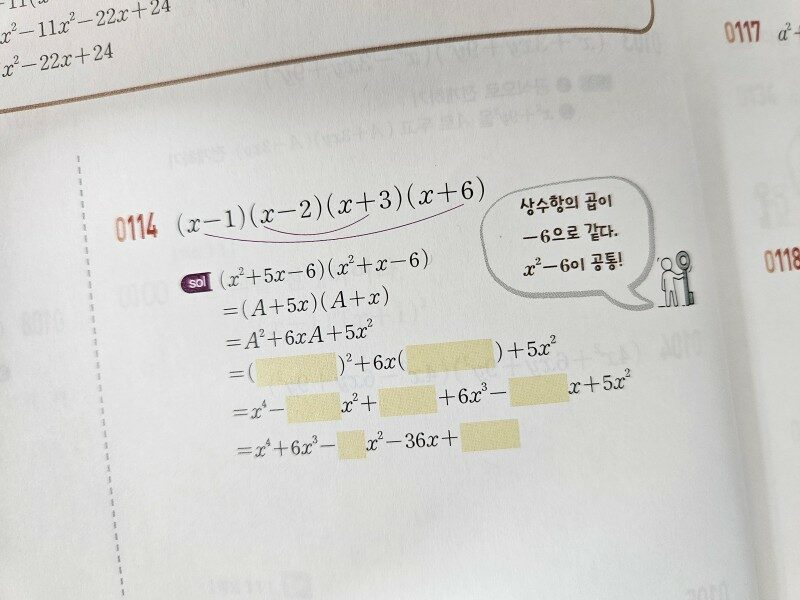 x²−11x²−22x+24
x²−22x+24
0117 a²+
0114 (x−1)(x−2)(x+3)(x+6)
상수항의 곱이
−6으로 같다.
x²−6이 공통!
0118
sol (x²+5x−6)(x²+x−6)
=(A+5x)(A+x)
=A²+6xA+5x²
=( )²+6x( )+5x²
=x⁴− x²+ +6x³− x+5x²
=x⁴+6x³− x²−36x+